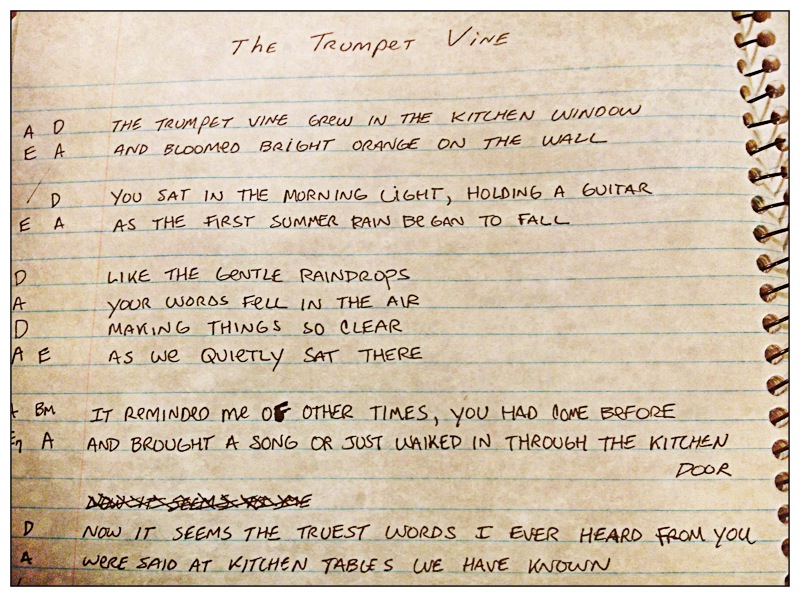 The Trumpet Vine
A D THE TRUMPET VINE GREW IN THE KITCHEN WINDOW
E A AND BLOOMED BRIGHT ORANGE ON THE WALL
/ D YOU SAT IN THE MORNING LIGHT, HOLDING A GUITAR
E A AS THE FIRST SUMMER RAIN BEGAN TO FALL
D LIKE THE GENTLE RAINDROPS
A YOUR WORDS FELL IN THE AIR
D MAKING THINGS SO CLEAR
A E AS WE QUIETLY SAT THERE
A Bm IT REMINDED ME OF OTHER TIMES, YOU HAD COME BEFORE
E7 A AND BROUGHT A SONG OR JUST WALKED IN THROUGH THE KITCHEN
DOOR
D NOW IT SEEMS THE TRUEST WORDS I EVER HEARD FROM YOU
A WERE SAID AT KITCHEN TABLES WE HAVE KNOWN